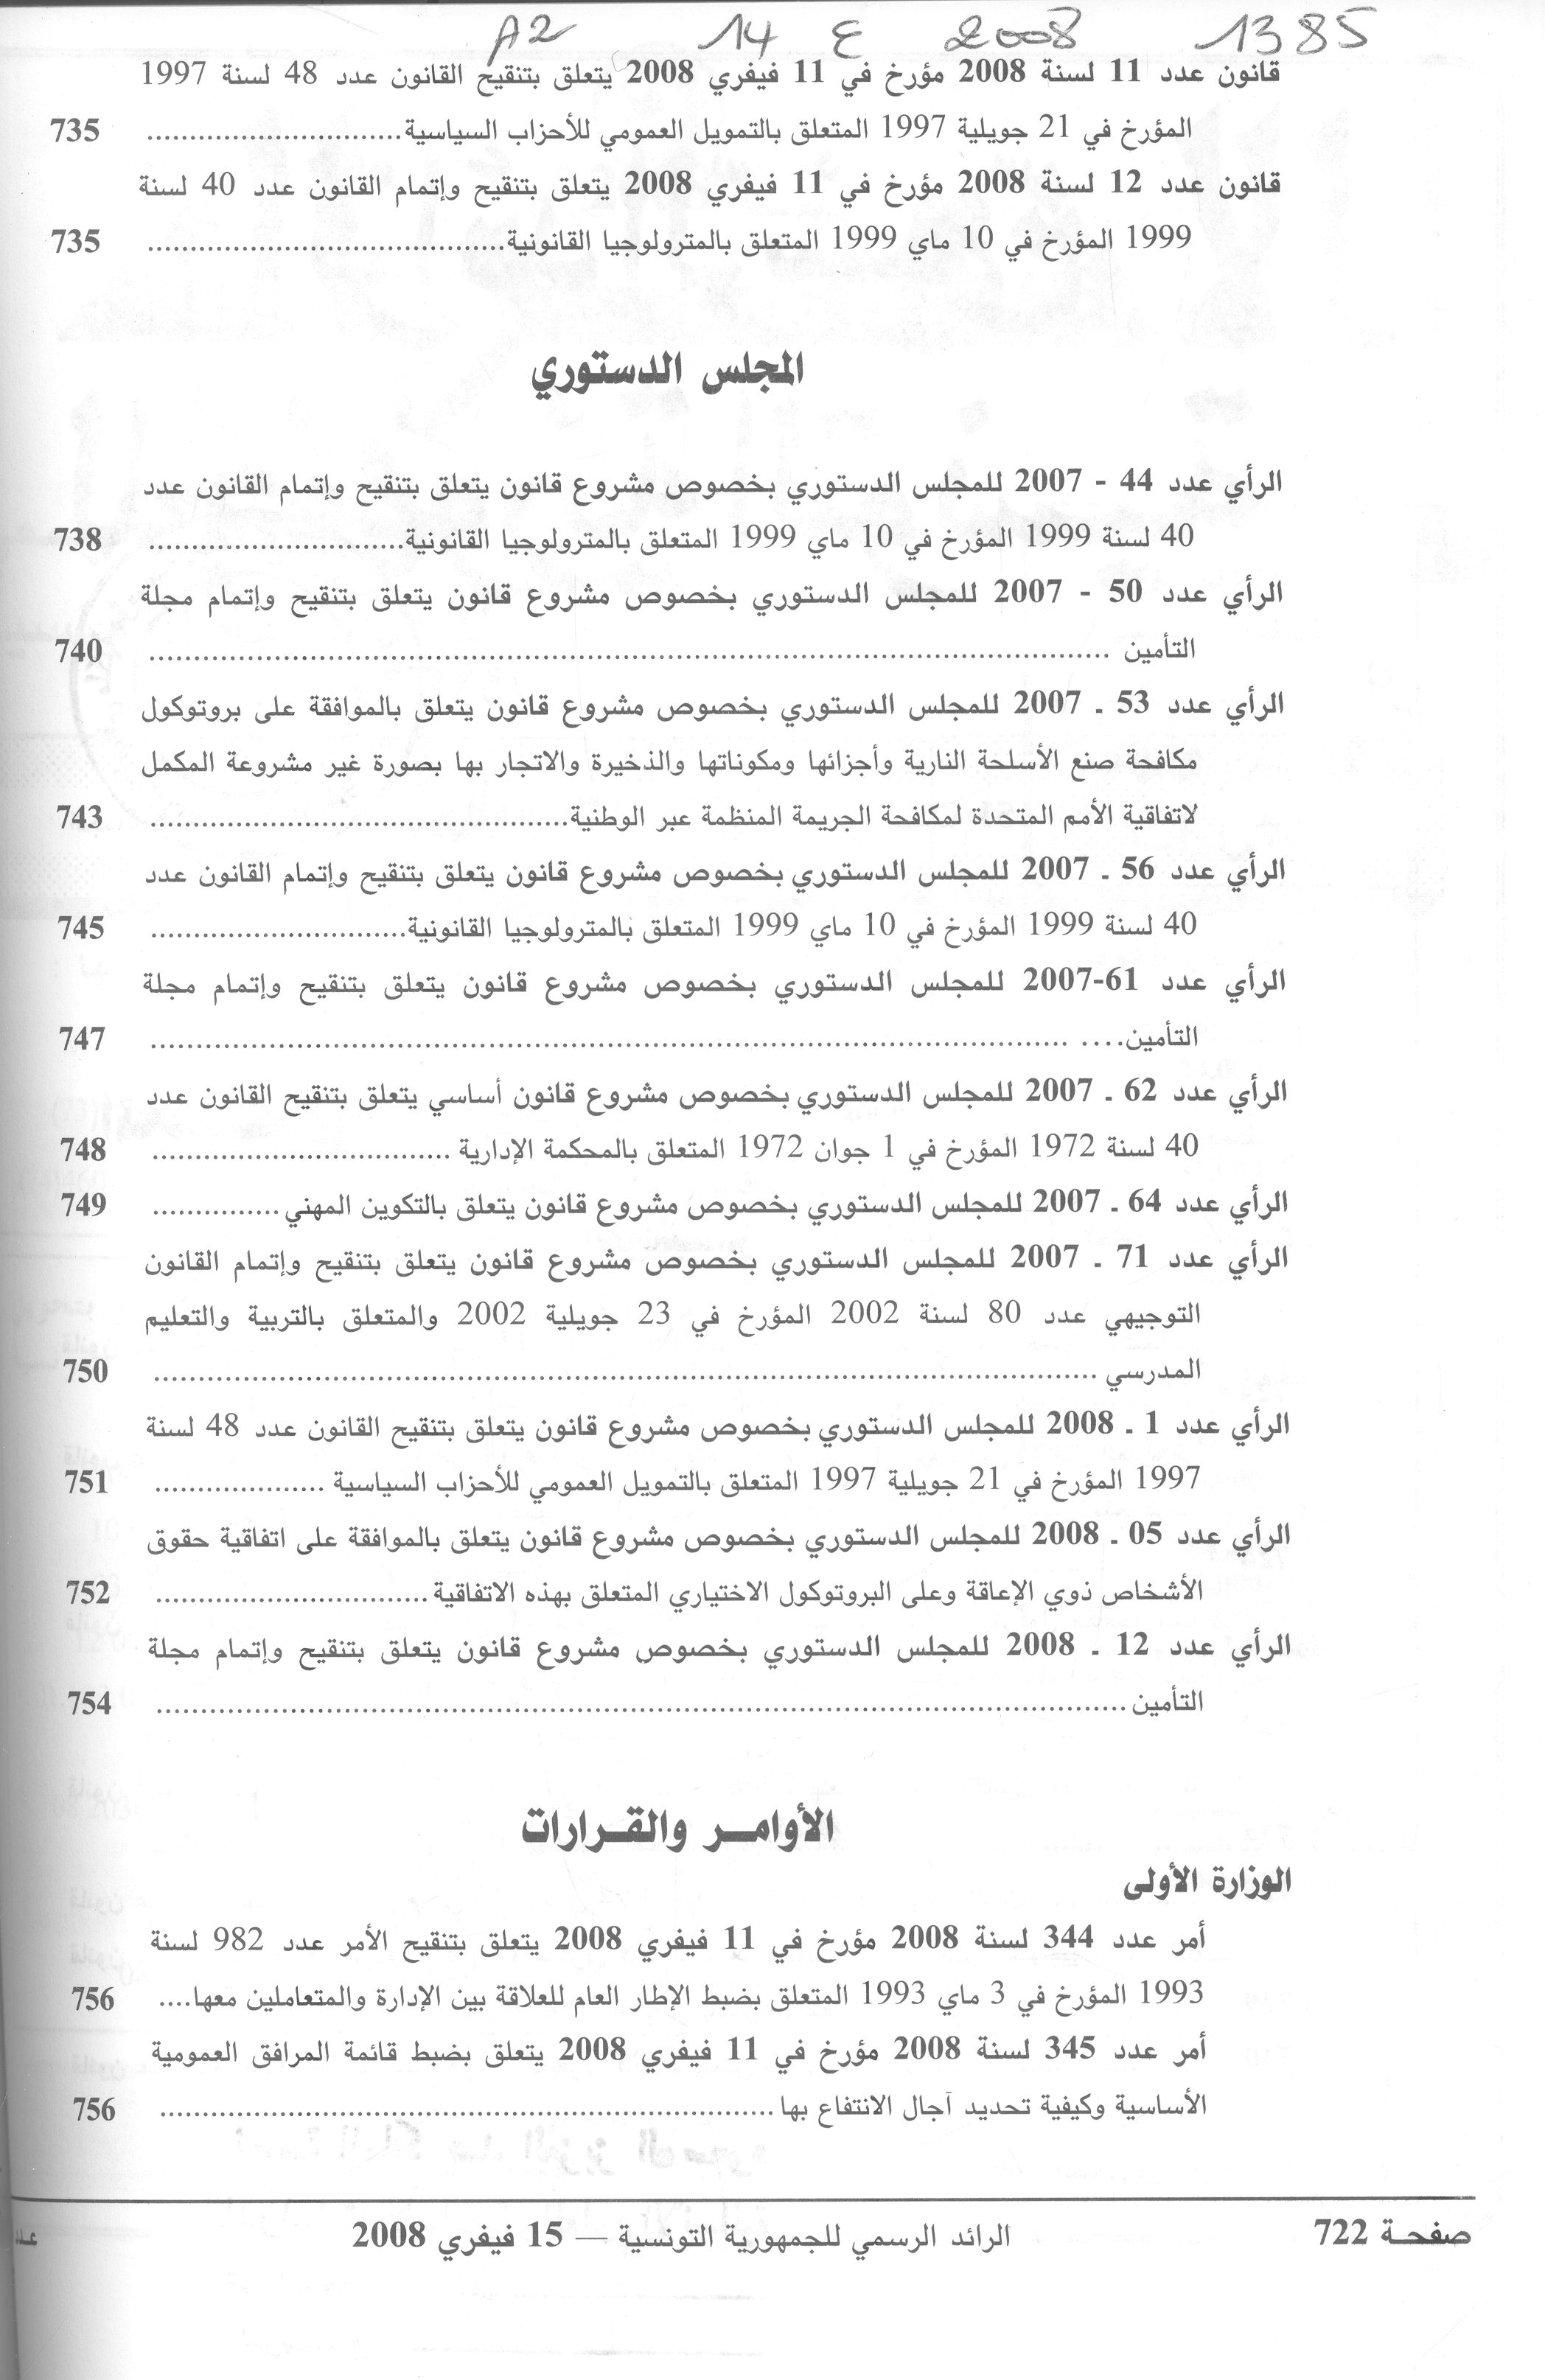 A2 14 ع 2008 1385
قانون عدد 11 لسنة 2008 مؤرخ في 11 فيفري 2008 يتعلق بتنقيح القانون عدد 48 لسنة 1997
المؤرخ في 21 جويلية 1997 المتعلق بالتمويل العمومي للأحزاب السياسية.............................. 735
قانون عدد 12 لسنة 2008 مؤرخ في 11 فيفري 2008 يتعلق بتنقيح وإتمام القانون عدد 40 لسنة
1999 المؤرخ في 10 ماي 1999 المتعلق بالمترولوجيا القانونية.......................................... 735
المجلس الدستوري
الرأي عدد 44 - 2007 للمجلس الدستوري بخصوص مشروع قانون يتعلق بتنقيح وإتمام القانون عدد
40 لسنة 1999 المؤرخ في 10 ماي 1999 المتعلق بالمترولوجيا القانونية.............................. 738
الرأي عدد 50 - 2007 للمجلس الدستوري بخصوص مشروع قانون يتعلق بتنقيح وإتمام مجلة
التأمين ............................................................................................................ 740
الرأي عدد 53 ـ 2007 للمجلس الدستوري بخصوص مشروع قانون يتعلق بالموافقة على بروتوكول
مكافحة صنع الأسلحة النارية وأجزائها ومكوناتها والذخيرة والاتجار بها بصورة غير مشروعة المكمل
لاتفاقية الأمم المتحدة لمكافحة الجريمة المنظمة عبر الوطنية................................................. 743
الرأي عدد 56 ـ 2007 للمجلس الدستوري بخصوص مشروع قانون يتعلق بتنقيح وإتمام القانون عدد
40 لسنة 1999 المؤرخ في 10 ماي 1999 المتعلق بالمترولوجيا القانونية.............................. 745
الرأي عدد 61-2007 للمجلس الدستوري بخصوص مشروع قانون يتعلق بتنقيح وإتمام مجلة
التأمين.... ........................................................................................................ 747
الرأي عدد 62 ـ 2007 للمجلس الدستوري بخصوص مشروع قانون أساسي يتعلق بتنقيح القانون عدد
40 لسنة 1972 المؤرخ في 1 جوان 1972 المتعلق بالمحكمة الإدارية ................................... 748
الرأي عدد 64 ـ 2007 للمجلس الدستوري بخصوص مشروع قانون يتعلق بالتكوين المهني............... 749
الرأي عدد 71 ـ 2007 للمجلس الدستوري بخصوص مشروع قانون يتعلق بتنقيح وإتمام القانون
التوجيهي عدد 80 لسنة 2002 المؤرخ في 23 جويلية 2002 والمتعلق بالتربية والتعليم
المدرسي ........................................................................................................... 750
الرأي عدد 1 ـ 2008 للمجلس الدستوري بخصوص مشروع قانون يتعلق بتنقيح القانون عدد 48 لسنة
1997 المؤرخ في 21 جويلية 1997 المتعلق بالتمويل العمومي للأحزاب السياسية .................... 751
الرأي عدد 05 ـ 2008 للمجلس الدستوري بخصوص مشروع قانون يتعلق بالموافقة على اتفاقية حقوق
الأشخاص ذوي الإعاقة وعلى البروتوكول الاختياري المتعلق بهذه الاتفاقية................................ 752
الرأي عدد 12 ـ 2008 للمجلس الدستوري بخصوص مشروع قانون يتعلق بتنقيح وإتمام مجلة
التأمين.............................................................................................................. 754
الأوامر والقرارات
الوزارة الأولى
أمر عدد 344 لسنة 2008 مؤرخ في 11 فيفري 2008 يتعلق بتنقيح الأمر عدد 982 لسنة
1993 المؤرخ في 3 ماي 1993 المتعلق بضبط الإطار العام للعلاقة بين الإدارة والمتعاملين معها.... 756
أمر عدد 345 لسنة 2008 مؤرخ في 11 فيفري 2008 يتعلق بضبط قائمة المرافق العمومية
الأساسية وكيفية تحديد آجال الانتفاع بها........................................................................ 756
صفحة 722 الرائد الرسمي للجمهورية التونسية — 15 فيفري 2008 عدد